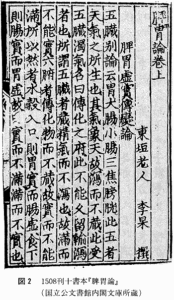 脾胃論卷上
東垣老人 李杲 撰
脾胃虛實傳變論
五臟別論云胃大腸小腸三焦膀胱此五者
天氣之所生也其氣象天故瀉而不藏此受
五臟濁氣名曰傳化之府此不能久留輸瀉
者也所謂五臟者藏精氣而不瀉也故滿而
不能實六腑者傳化物而不藏故實而不能
滿所以然者水穀入口則胃實而腸虛食下
則腸實而胃虛故曰實而不滿滿而不實也
図2 1508刊十書本『脾胃論』
（国立公文書館内閣文庫所蔵）